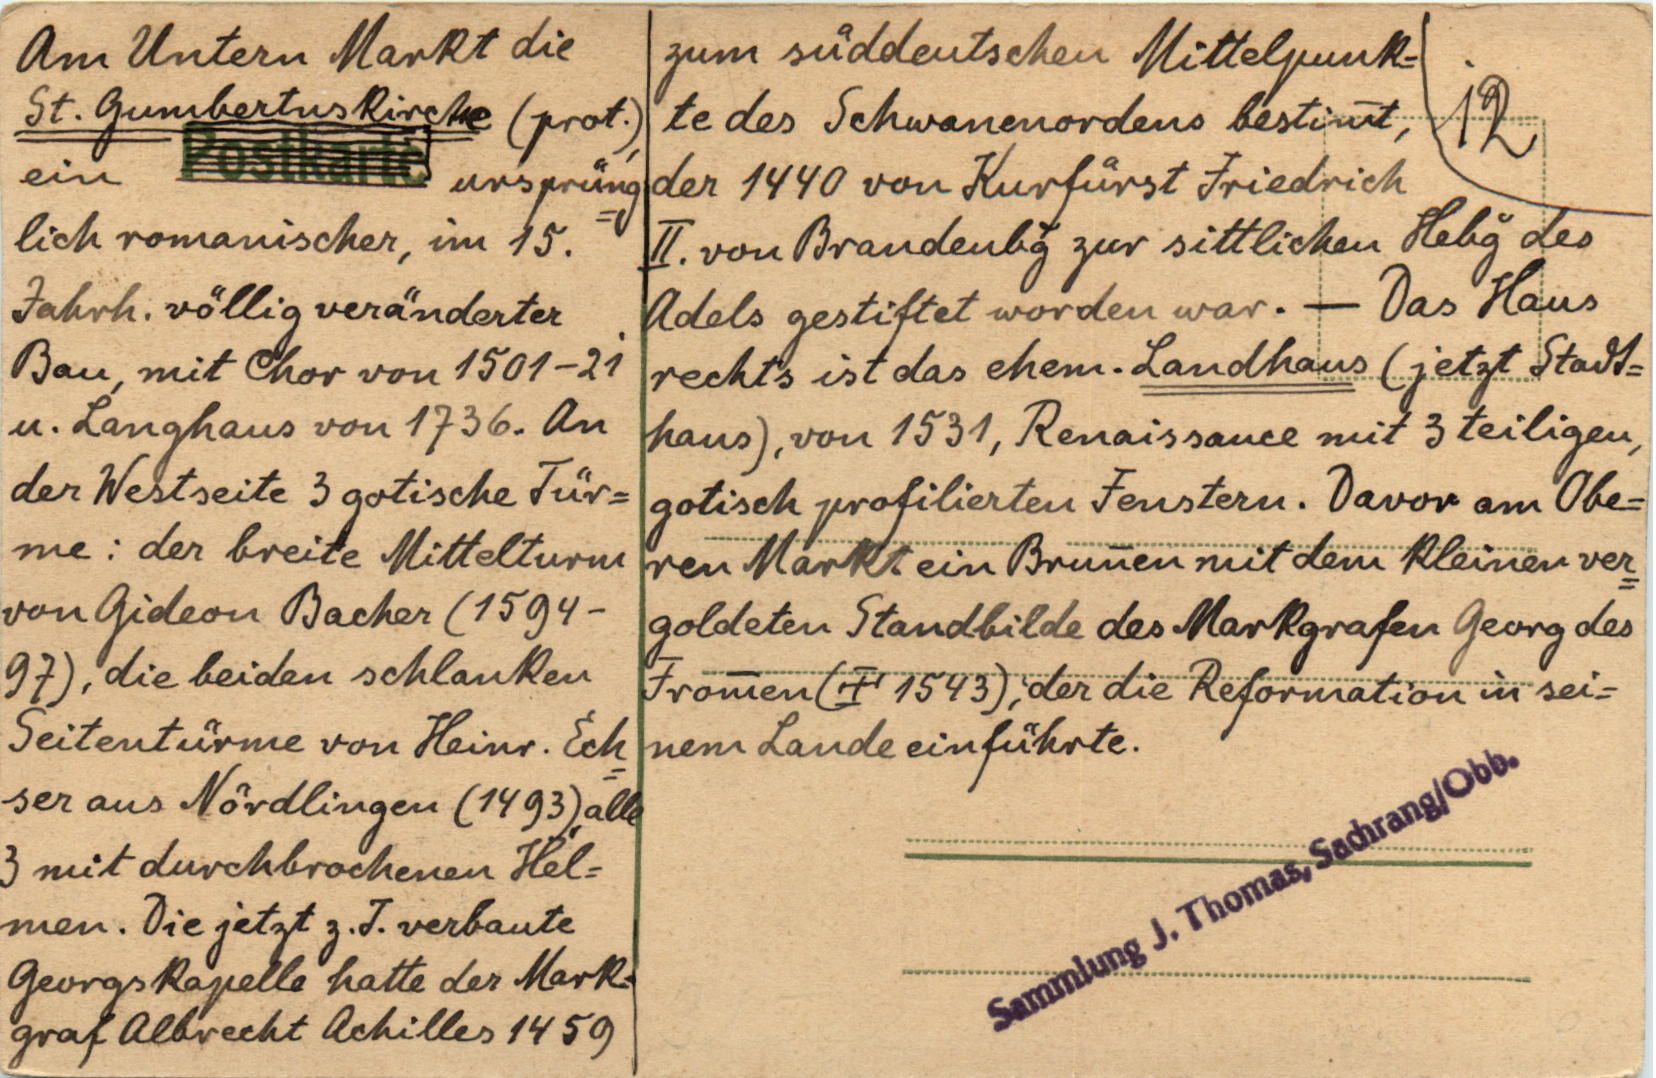 Am Untern Markt die
St. Gumbertuskirche (prot.),
Postkarte
ein ursprüng=
lich romanischer, im 15.
Jahrh. völlig veränderter
Bau, mit Chor von 1501-21
u. Langhaus von 1736. An
der Westseite 3 gotische Tür=
me: der breite Mittelturm
von Gideon Bacher (1594-
97), die beiden schlanken
Seitentürme von Heinr. Ech=
ser aus Nördlingen (1493) alle
3 mit durchbrochenen Hel=
men. Die jetzt z.T. verbaute
Georgskapelle hatte der Mark=
graf Albrecht Achilles 1459
12
zum süddeutschen Mittelpunk=
te des Schwanenordens bestim̅t,
der 1440 von Kurfürst Friedrich
II. von Brandenbğ zur sittlichen Hebğ des
Adels gestiftet worden war. — Das Haus
rechts ist das ehem. Landhaus (jetzt Stadt=
haus), von 1531, Renaissance mit 3 teiligen,
gotisch profilierten Fenstern. Davor am Obe=
ren Markt ein Brun̅en mit dem kleinen ver=
goldeten Standbilde des Markgrafen Georg des
From̅en († 1543), der die Reformation in sei=
nem Lande einführte.
Sammlung J. Thomas, Sachrang/Obb.